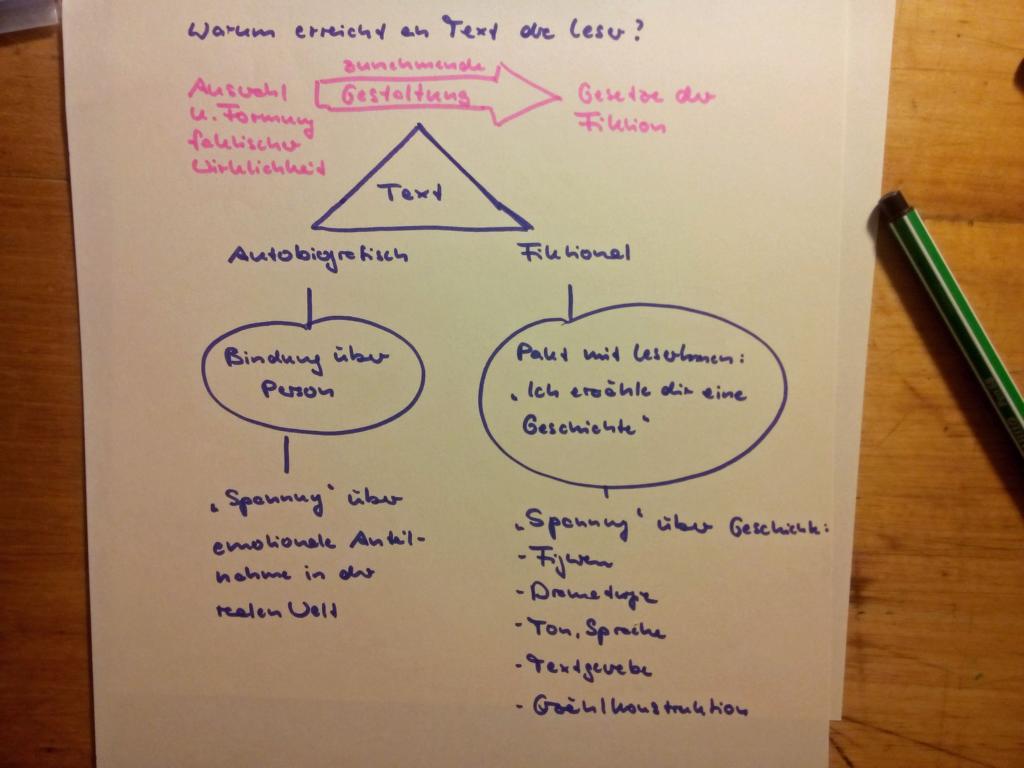 Warum erreicht ein Text die Leser?
zunehmende
Gestaltung
Auswahl
u. Formung
faktischer
Wirklichkeit
Gesetze der
Fiktion
Text
Autobiografisch
Fiktional
Bindung über
Person
Pakt mit LeserInnen:
„Ich erzähle dir eine
Geschichte"
„Spannung" über
emotionale Anteil-
nahme in der
realen Welt
„Spannung" über Geschichte:
- Figuren
- Dramaturgie
- Ton, Sprache
- Textgewebe
- Erzählkonstruktion